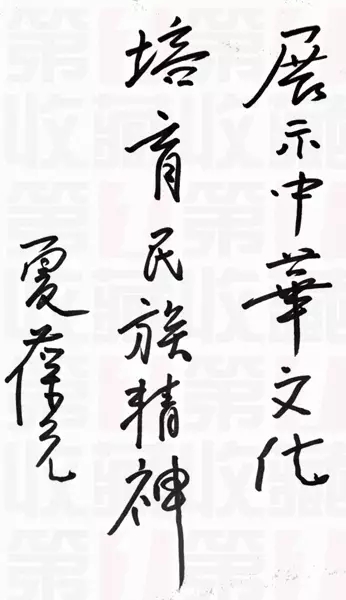 展示中華文化
培育民族精神
夏葆元